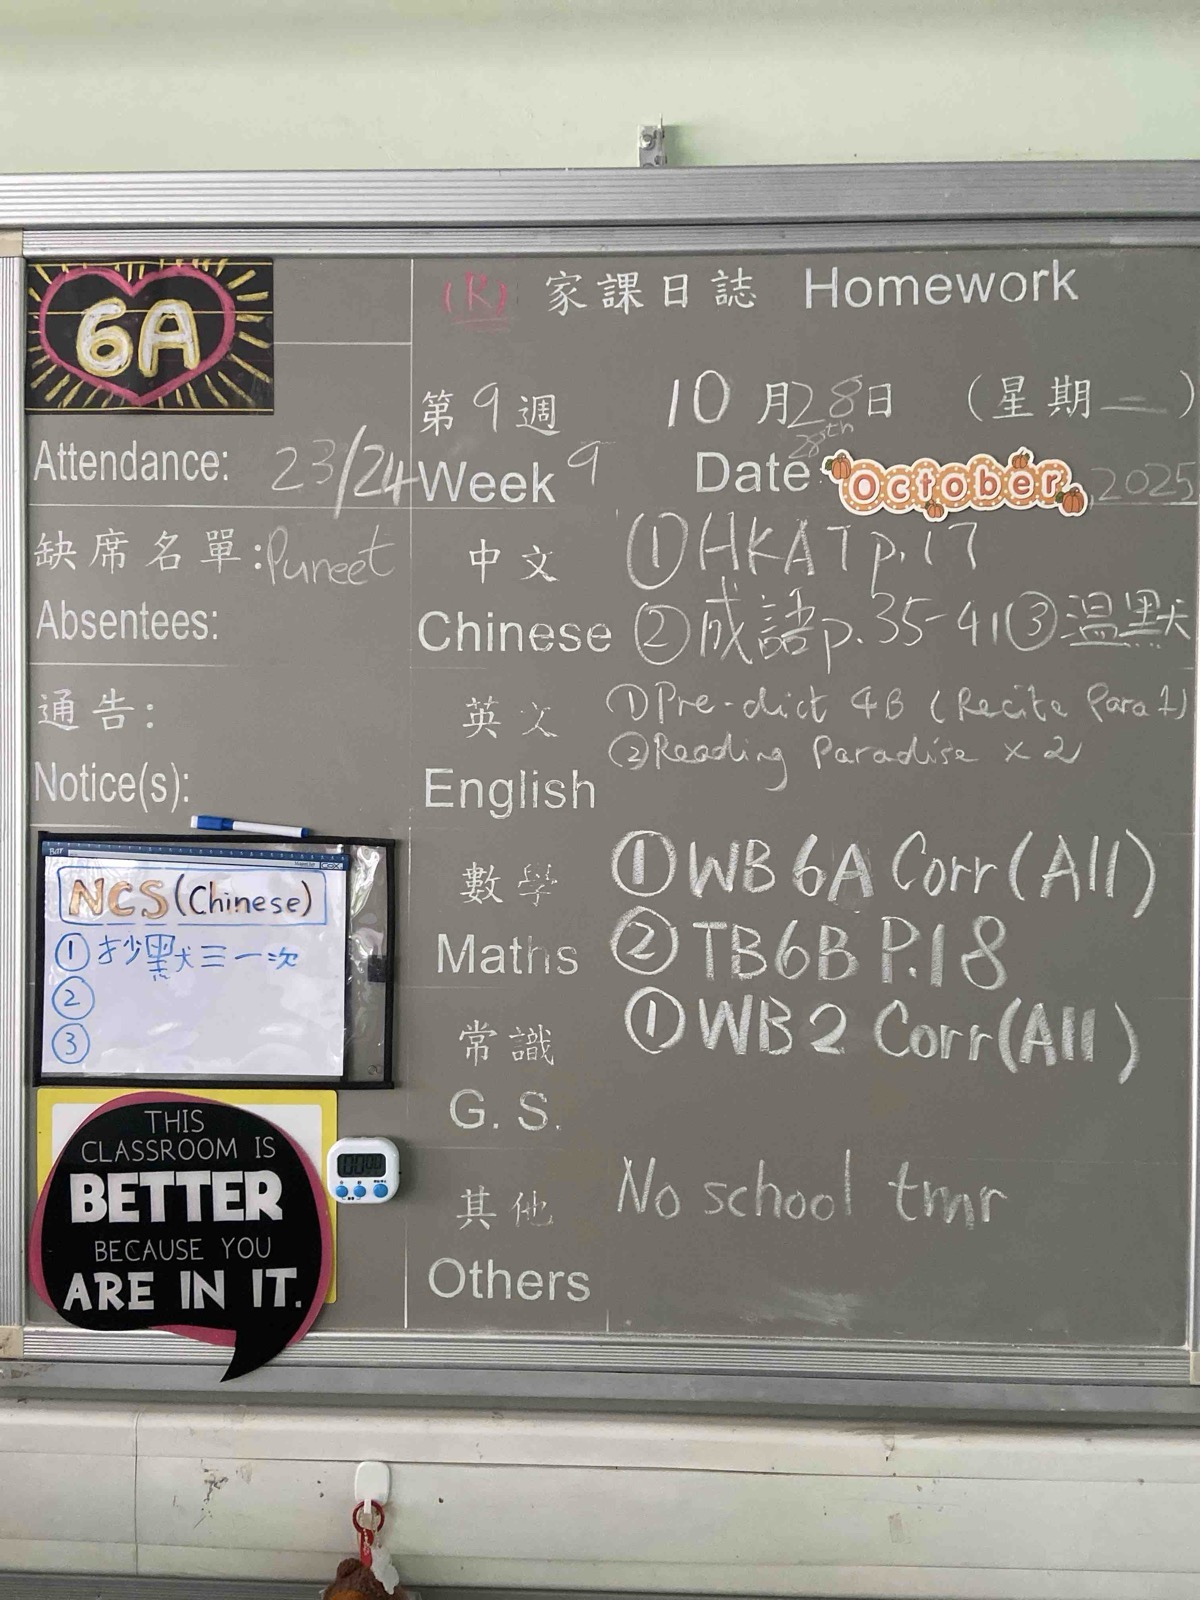 6A
(R) 家課日誌 Homework
第9週 10月28日 (星期二)
Week 9 Date 28th October, 2025
Attendance: 23/24
缺席名單: Puneet
Absentees:
通告:
Notice(s):
中文 ①HKAT p.17
Chinese ②成語p.35-41 ③温默
英文 ①Pre-dict 4B (Recite Para 1)
②Reading Paradise x2
English
數學 ①WB 6A Corr (All)
Maths ②TB6B P.18
常識 ①WB2 Corr (All)
G. S.
其他 No school tmr
Others
NCS (Chinese)
①抄默三一次
②
③
THIS
CLASSROOM IS
BETTER
BECAUSE YOU
ARE IN IT.